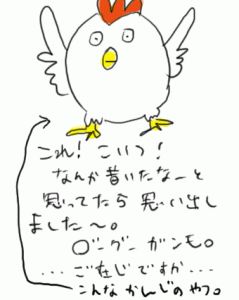 これ！こいつ！
なんか昔いたなーと
思ってたら思い出し
ました〜。
○ーグーガンモ。
...ご在じですか...
こんなかんじのやつ。